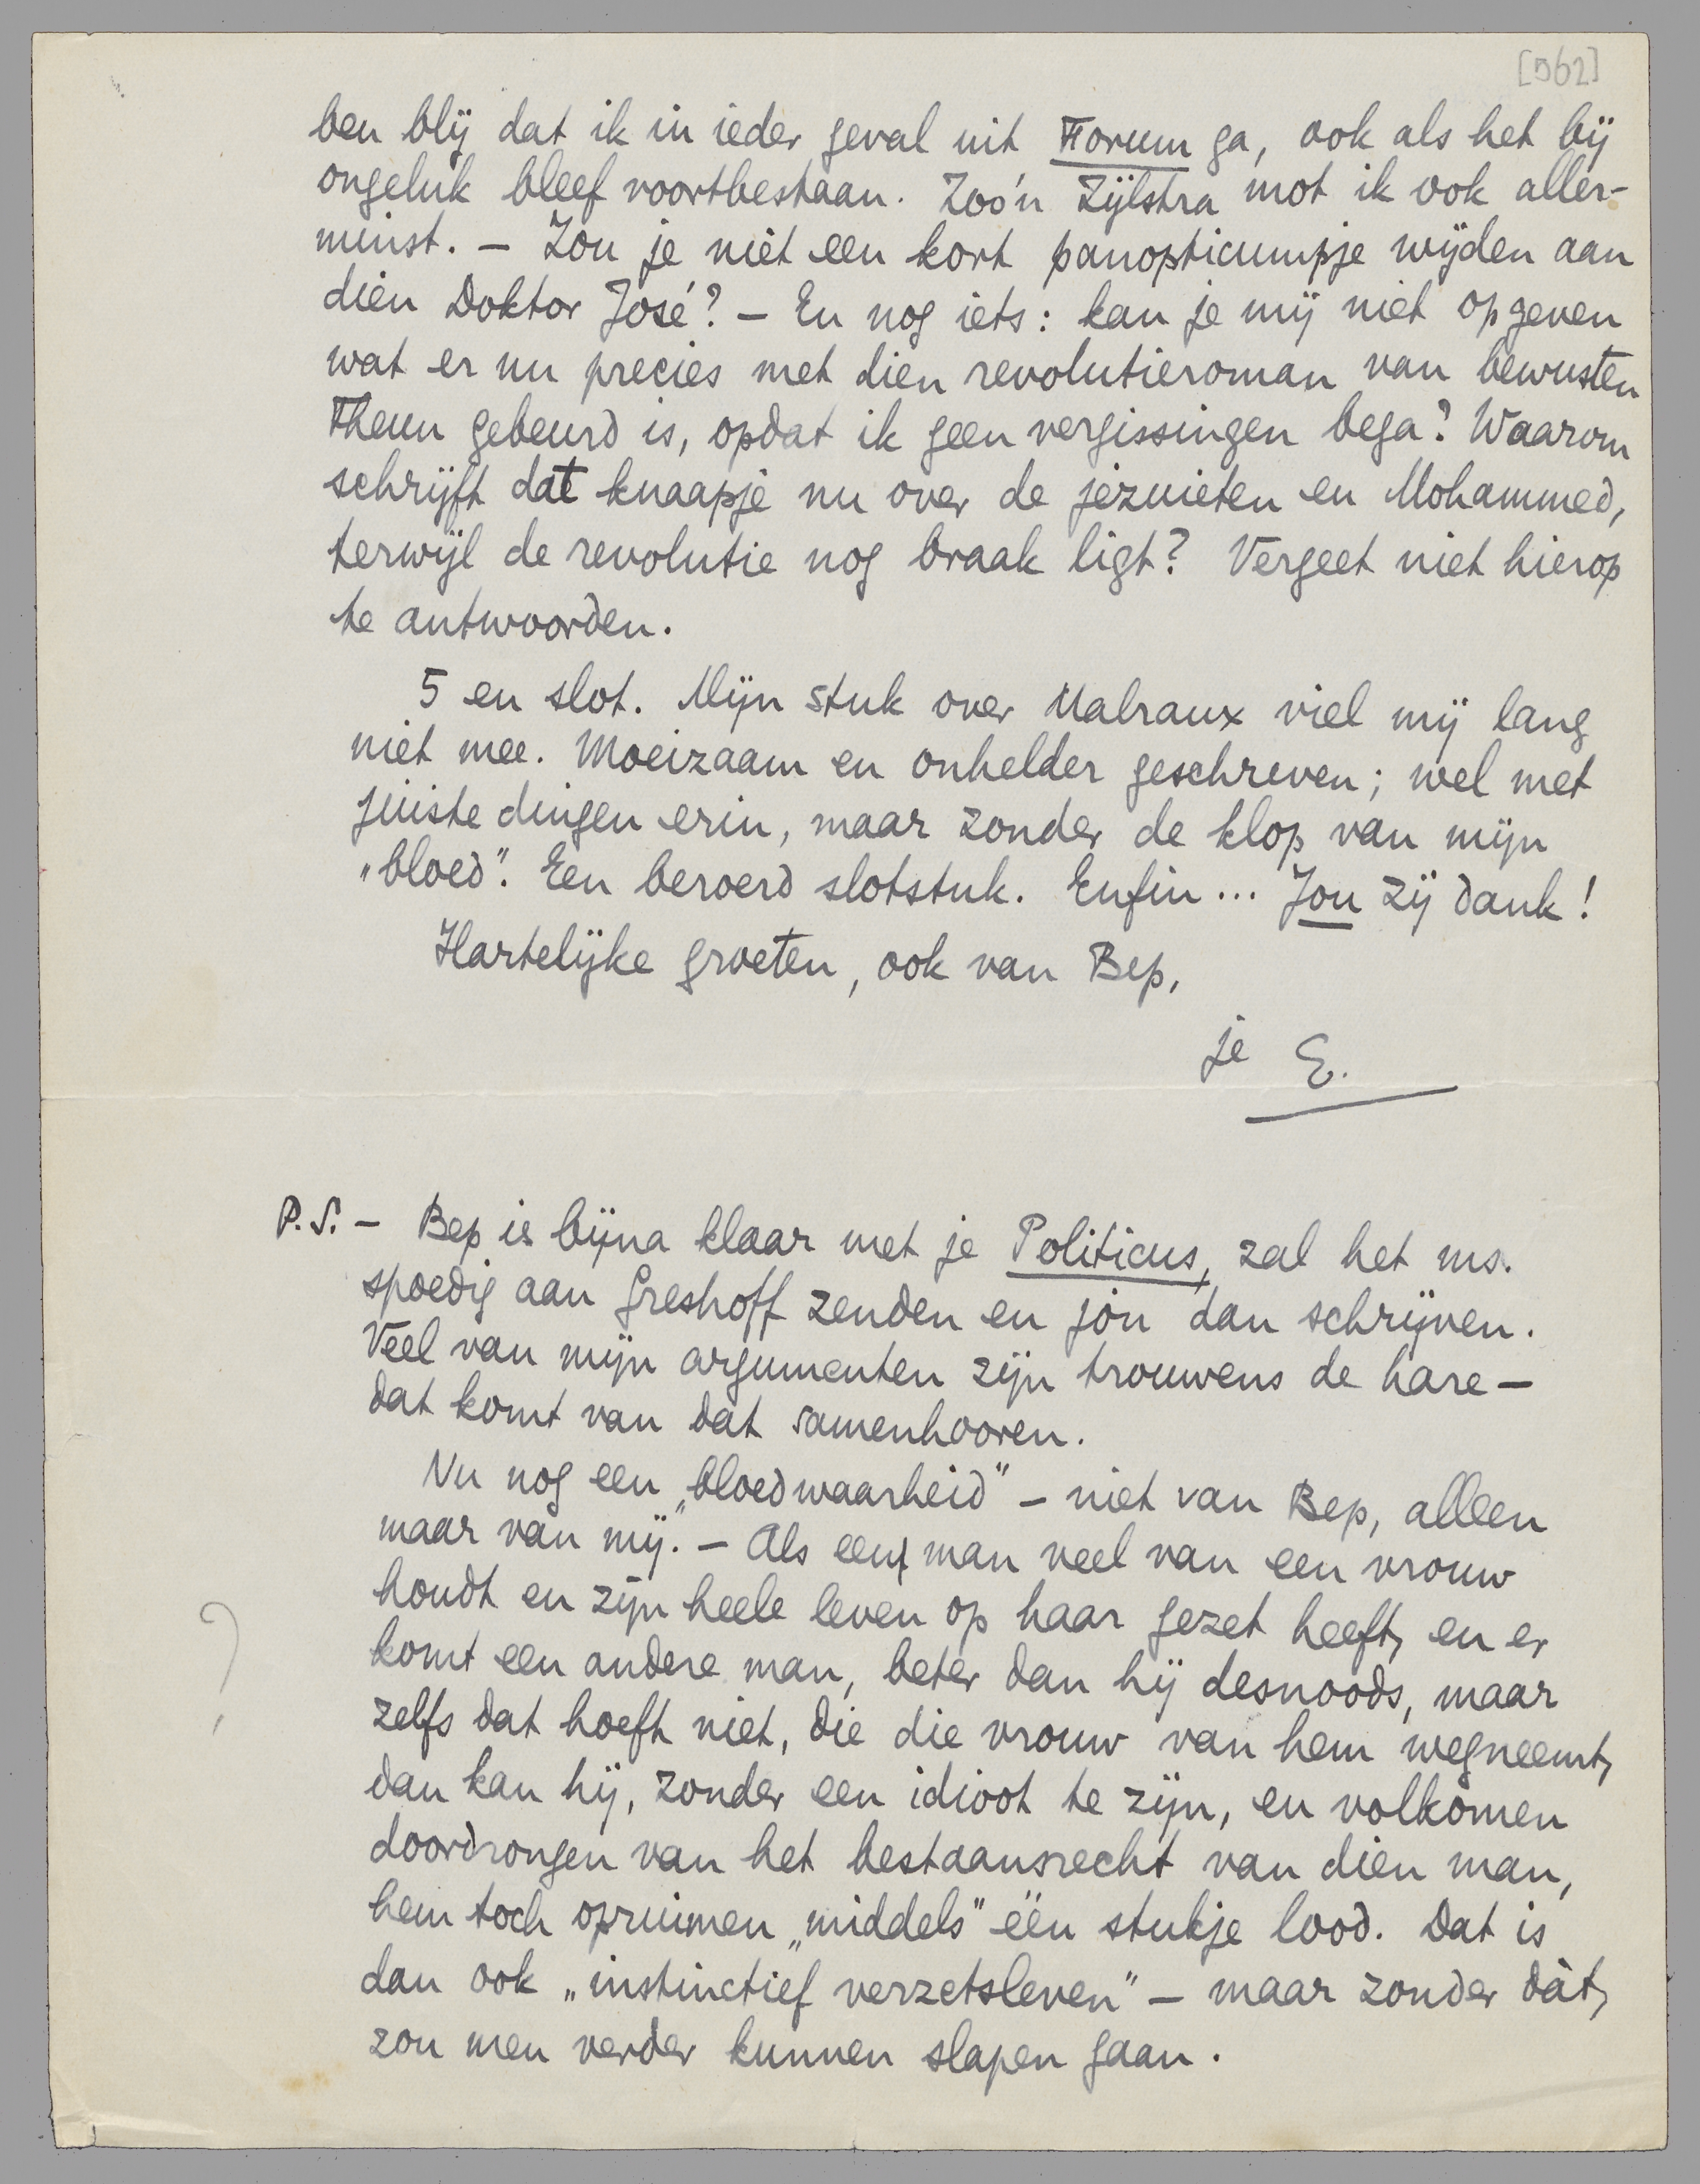 [562]
ben blij dat ik in ieder geval uit Forum ga, ook als het bij
ongeluk bleef voortbestaan. Zoo'n Zijlstra mot ik ook aller-
minst. — Zou je niet een kort panopticumpje wijden aan
dien Doktor José? — En nog iets: kan je mij niet opgeven
wat er nu precies met dien revolutieroman van bewusten
Theun gebeurd is, opdat ik geen vergissingen bega? Waarom
schrijft dat knaapje nu over de jezuieten en Mohammed,
terwijl de revolutie nog braak ligt? Vergeet niet hierop
te antwoorden.
5 en slot. Mijn stuk over Malraux viel mij lang
niet mee. Moeizaam en onhelder geschreven; wel met
juiste dingen erin, maar zonder de klop van mijn
„bloed”. Een beroerd slotstuk. Enfin... Jou zij dank!
Hartelijke groeten, ook van Bep,
je E.
P.S. — Bep is bijna klaar met je Politicus, zal het ms.
spoedig aan Greshoff zenden en jou dan schrijven.
Veel van mijn argumenten zijn trouwens de hare —
dat komt van dat samenhooren.
Nu nog een „bloedwaarheid” — niet van Bep, alleen
maar van mij. — Als een man veel van een vrouw
houdt en zijn heele leven op haar gezet heeft, en er
komt een andere man, beter dan hij desnoods, maar
zelfs dat hoeft niet, die die vrouw van hem wegneemt,
dan kan hij, zonder een idioot te zijn, en volkomen
doordrongen van het bestaansrecht van dien man,
hem toch opruimen „middels” één stukje lood. Dat is
dan ook „instinctief verzetsleven” — maar zonder dàt,
zou men verder kunnen slapen gaan.
?